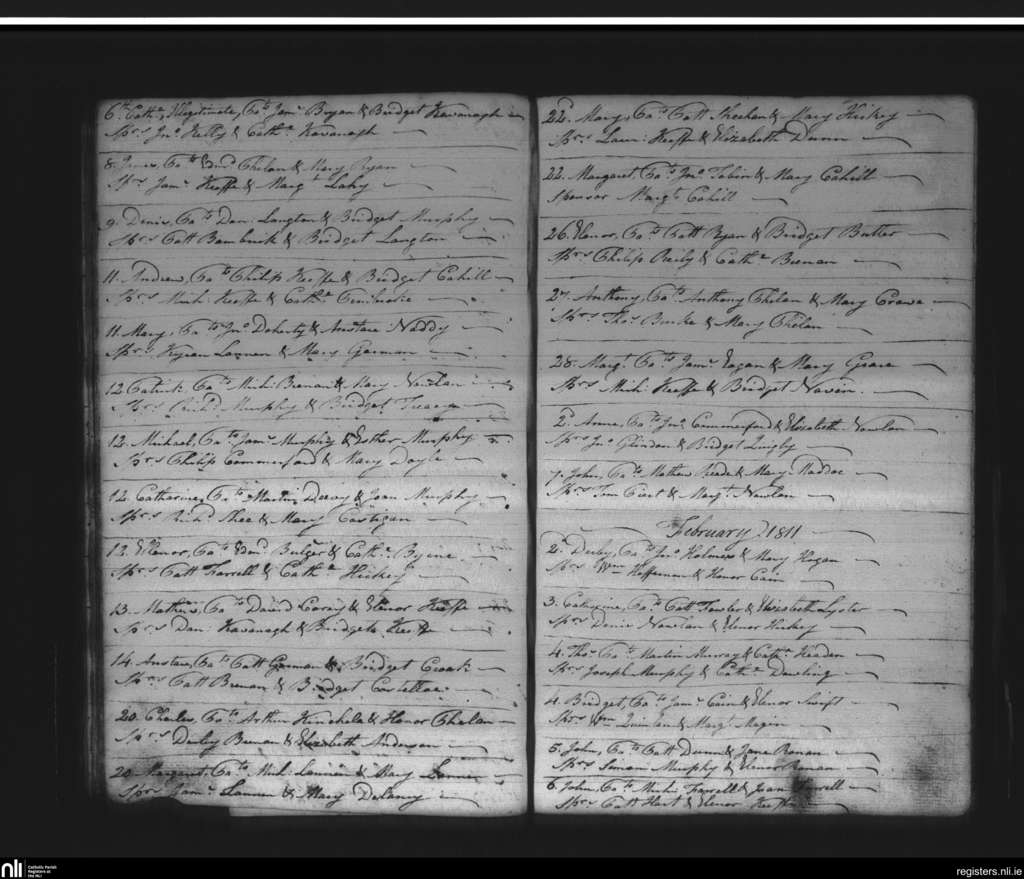 6th Cathe, Illegitimate, Bap. to Jams Bryan & Bridget Kavanagh
Sprs Jno Kelly & Cathe Kavanagh
8. Bap. to Edmd Phelan & Mary Ryan
Sprs Jams Keeffe & Margt Lahy
9. Denis, Bap. to Dan: Langton & Bridget Murphy
Sprs Patt Bambrick & Bridget Langton
11. Andrew, Bap. to Philip Keeffe & Bridget Cahill
Sprs Mich: Keeffe & Cathe
11. Mary, Bap. to Jno Doherty & Anstace Naddy
Sprs Kyran Lannen & Mary Gorman
12 Patrick Bap. to Mich: Brenan & Mary Nowlan
Sprs Richd Murphy & Bridget Treacy
12. Michael, Bap. to Jams Murphy & Esther Murphy
Sprs Philip Commerford & Mary Doyle
12. Catharine, Bap. to Martin & Joan Murphy
Sprs Richd Shee & Mary Costigan
13. Ellenor, Bap. to Edmd Bulger & Cathe Byrne
Sprs Patt Farrell & Cathe Hickey
13. Mathew, Bap. to David & Elenor Keeffe
Sprs Dan: Kavanagh & Bridget Keeffe
14. Anstace, Bap. to Patt Gorman & Bridget Croak
Sprs Patt Brenan & Bridget Costelloe
20. Charles, Bap. to Arthur Kinchela & Honor Phelan
Sprs Derby Brenan & Elizabeth Anderson
20. Margaret, Bap. to Mich: Lannen & Mary
Sprs Jams Lannen & Mary Delany
22. Mary, Bap. to Patt Sheehan & Mary Hickey
Sprs Laur: Keeffe & Elizabeth Dunn
22. Margaret Bap. to Jno Tobin & Mary Cahill
Sponsor Margt Cahill
26. Elenor, Bap. to Patt Ryan & Bridget Butler
Sprs Philip Reily & Cathe Brenan
27. Anthony, Bap. to Anthony Phelan & Mary
Sprs Thos Burke & Mary Phelan
28. Margt Bap. to Jams Eagan & Mary Grace
Sprs Mich: Keeffe & Bridget Navin.
2d. Anne, Bap. to Jno Commerford & Elizabeth Nowlan
Sprs Jno & Bridget Quigly
7. John, Bap. to Mathew Reade & Mary
Sprs Tim & Margt Nowlan
February 1811
2d. Derby, Bap. to Jno Holmes & Mary Hogan
Sprs Wm Heffernan & Honor Cain
3. Catherine, Bap. to Patt Fowler & Elizabeth Lyster
Sprs Denis Nowlan & Elenor Hickey
4. Thos Bap. to Martin Murray & Cathe Headen
Sprs Joseph Murphy & Cathe Dowling
4. Bridget, Bap. to Jams Cain & Elenor Swift
Sprs Wm Quinlan & Margt
5. John, Bap. to Patt Dunn & Jane Ronan
Sprs Simon Murphy & Elenor Ronan
6. John, Bap. to Mich: Farrell & Joan Farrell
Sprs Patt Hart & Elenor Keeffe
nli
Catholic Parish
Registers at
the NLI
registers.nli.ie